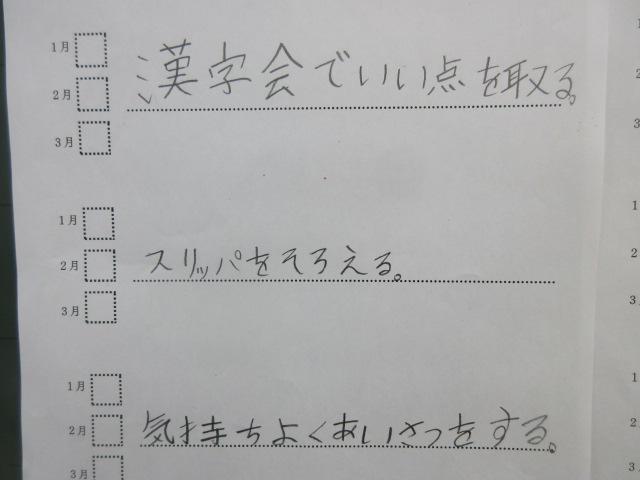 1月
2月 漢字会でいい点を取る。
3月
1月
2月 スリッパをそろえる。
3月
1月
2月 気持ちよくあいさつをする。
3月